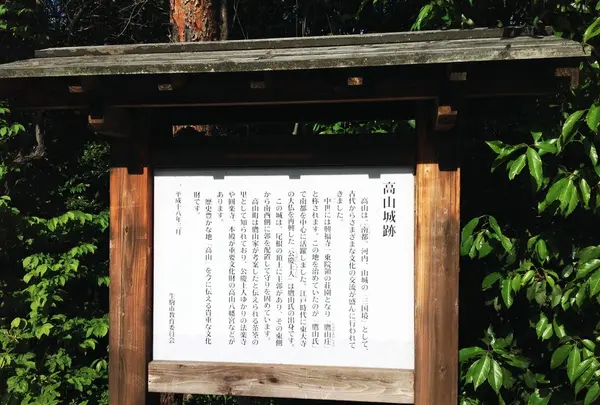 高山城跡
高山は、「南都、河内、山城の『三国境』として、
古代からさまざまな文化の交流が盛んに行われて
きました。
中世には興福寺一乗院領の荘園となり「鷹山庄」
と称されます。この地を治めていたのが「鷹山氏」
で南都を中心に活躍しました。江戸時代に東大寺
の大仏を再興した「公慶上人」は鷹山氏の出身です。
この城は、尾根の頂上に主郭があり、その東側
から南西側に郭を配置して守りを固めています。
高山町は鷹山家が考案したと伝えられる茶筌の
里として知られており、公慶上人ゆかりの法楽寺
や円楽寺、本殿が重要文化財の高山八幡宮などが
あります。
歴史豊かな地「高山」を今に伝える貴重な文化
財です。
平成十八年二月
生駒市教育委員会